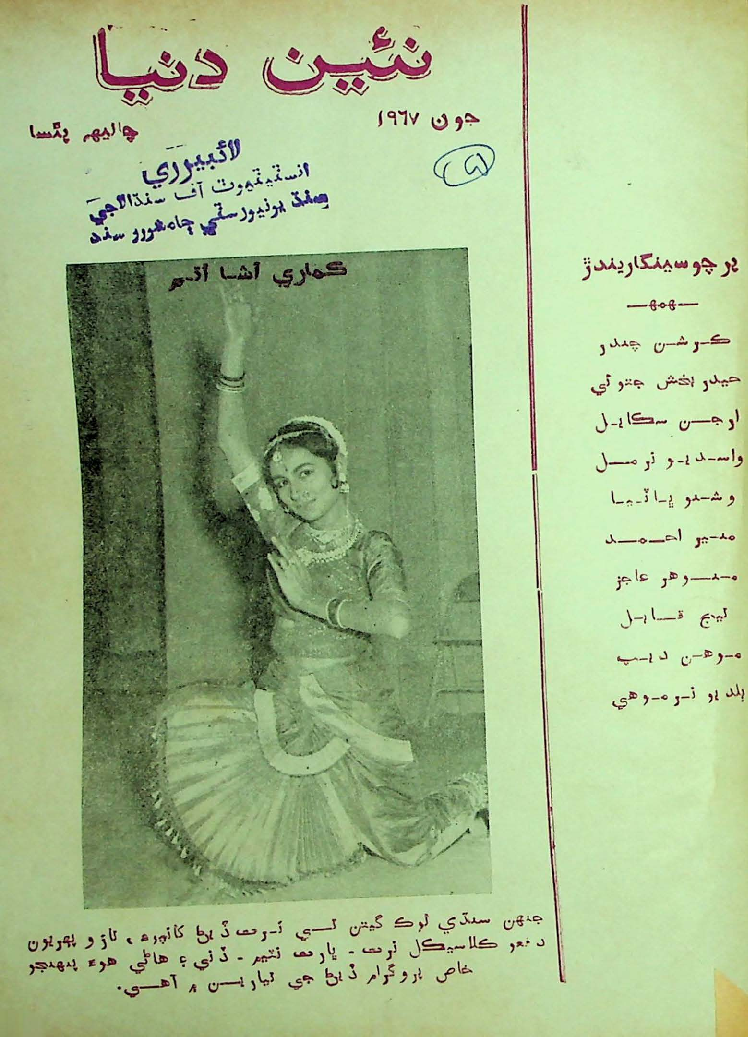 نئين دنيا
جون ١٩٦٧
چاليهہ پئسا
لائبيرري
انسٽيٽيوٽ آف سنڌالاجي
سنڌ يونيورسٽي ڄامشورو سنڌ
ڪماري آشا آتم
پرچو سينگاريندڙ
ڪرشن چندر
حيدر بخش جتوئي
ارجن سڪايل
واسديو نرمل
وشنو ڀاٽيا
منير احمد
منوهر عاجز
ليج قابل
موهن ديپ
بلديو نرموهي
جنهن سنڌي لوڪ گيتن تي نرت ڏيڻ کانپوءِ، تازو پهريون
دفعو ڪلاسيڪل نرت - ڀارت نٽيم - ڏني ۽ هاڻي هوءَ پنهنجو
خاص پروگرام ڏيڻ جي تيارين ۾ آهي.